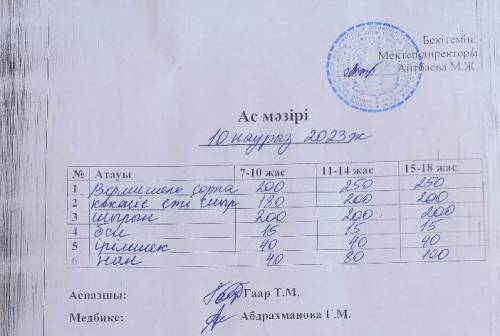 Бекітемін:
Мектеп директоры
Айтбаева М.Ж.
Ас мәзірі
10 наурыз 2023ж
№ Атауы 7-10 жас 11-14 жас 15-18 жас
1 Вермишель сорпа 200 250 250
2 етті 180 200 200
3 шырын 200 200 200
4 15 15 15
5 ірімшек 40 40 40
6 нан 40 80 100
Аспазшы: Гаар Т.М.
Медбике: Абдрахманова Г.М.